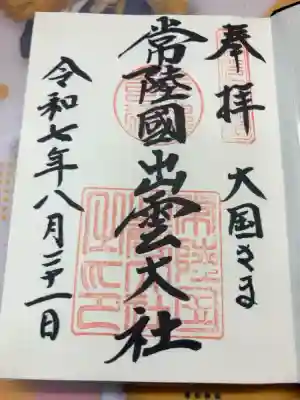 奉拝
大国さま
常陸國出雲大社
令和七年八月二十一日